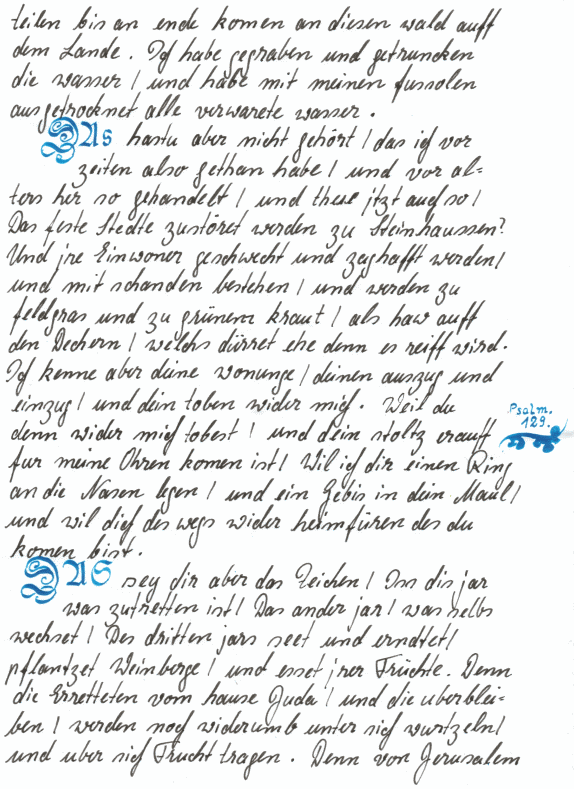 teilen bis an ende komen an diesen wald auff
dem Lande. Ich habe gegraben und getruncken
die wasser / und habe mit meinen fussolen
ausgetrocknet alle verwarete wasser.
DAs hastu aber nicht gehört / das ich vor
zeiten also gethan habe / und vor al=
ters her so gehandelt / und thue jtzt auch so /
Das feste Stedte zustöret werden zu Steinhaussen?
Und jre Einwoner geschwecht und zaghafft werden /
und mit schanden bestehen / und werden zu
feldgras und zu grünem kraut / als haw auff
den Dechern / welchs dürret ehe denn es reiff wird.
Ich kenne aber deine wonunge / deinen auszug und
einzug / und dein toben wider mich. Weil du
Psalm.
129.
denn wider mich tobest / und dein stoltz erauff
fur meine Ohren komen ist / Wil ich dir einen Ring
an die Nasen legen / und ein Gebis in dein Maul /
und wil dich des wegs wider heimfüren des du
komen bist.
DAS sey dir aber das Zeichen / Iss dis jar
was zutretten ist / Das ander jar / was selbs
wechset / Des dritten jars seet und erndtet /
pflantzet Weinberge / und esset jrer Früchte. Denn
die Erretteten vom hause Juda / und die uberblei=
ben / werden noch widerumb unter sich wurtzeln /
und uber sich Frucht tragen. Denn von Jerusalem